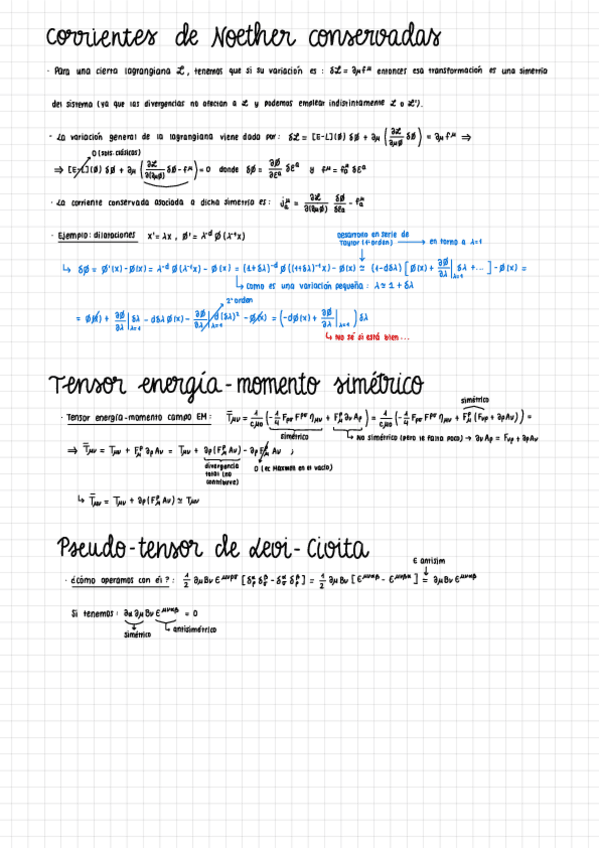 Corrientes de Noether conservadas
· Para una cierta lagrangiana ℒ, tenemos que si su variación es: δℒ = ∂μ f^μ entonces esa transformación es una simetría
del sistema (ya que las divergencias no afectan a ℒ y podemos emplear indistintamente ℒ o ℒ').
· La variación general de la lagrangiana viene dada por: δℒ = [E-L](ø) δø + ∂μ (∂ℒ/∂μø δø) = ∂μ f^μ ⇒
0 (sols. clásicas)
⇒ [E-L](ø) δø + ∂μ (∂ℒ/∂(∂μø) δø - f^μ) = 0 donde δø = ∂ø/∂ε^a δε^a y f^μ = f^μ_a δε^a
· La corriente conservada asociada a dicha simetría es: j^μ_a = ∂ℒ/∂(∂μø) δø/δε_a - f^μ_a
· Ejemplo: dilataciones x' = λx , ø' = λ^-d ø (λ^-1 x)
Desarrollo en serie de
Taylor (1º orden) → en torno a λ=1
↳ δø = ø'(x) - ø(x) = λ^-d ø (λ^-1 x) - ø(x) = (1+δλ)^-d ø ((1+δλ)^-1 x) - ø(x) ≃ (1-dδλ) [ø(x) + ∂ø/∂λ|λ=1 δλ + ...] - ø(x) =
↳ Como es una variación pequeña: λ ≃ 1 + δλ
2º orden
= ø(x) + ∂ø/∂λ|λ=1 δλ - dδλ ø(x) - ∂ø/∂λ|λ=1 d(δλ)² - ø(x) = (-dø(x) + ∂ø/∂λ|λ=1) δλ
↳ No sé si está bien...
Tensor energía-momento simétrico
simétrico
· Tensor energía-momento campo EM: T̄μν = 1/cμ0 (-1/4 Fρσ F^ρσ ημν + F^ρ_μ ∂ν Aρ) = 1/cμ0 (-1/4 Fρσ F^ρσ ημν + F^ρ_μ (Fνρ + ∂ρ Aν)) =
simétrico
↳ No simétrico (pero le falta poco) → ∂ν Aρ = Fνρ + ∂ρ Aν
⇒ T̄μν = Tμν + F^ρ_μ ∂ρ Aν = Tμν + ∂ρ (F^ρ_μ Aν) - ∂ρ F^ρ_μ Aν ;
divergencia
total (no
contribuye)
0 (ec Maxwell en el vacío)
↳ T̄μν = Tμν + ∂ρ (F^ρ_μ Aν) ≃ Tμν
Pseudo-tensor de Levi-Civita
ε antisim
· ¿Cómo operamos con él?: 1/2 ∂μ Bν ε^μνρσ [δ^α_ρ δ^β_σ - δ^α_σ δ^β_ρ] = 1/2 ∂μ Bν [ε^μναβ - ε^μνβα] = ∂μ Bν ε^μναβ
Si tenemos: ∂α ∂μ Bν ε^μναβ = 0
simétrico
↳ antisimétrico